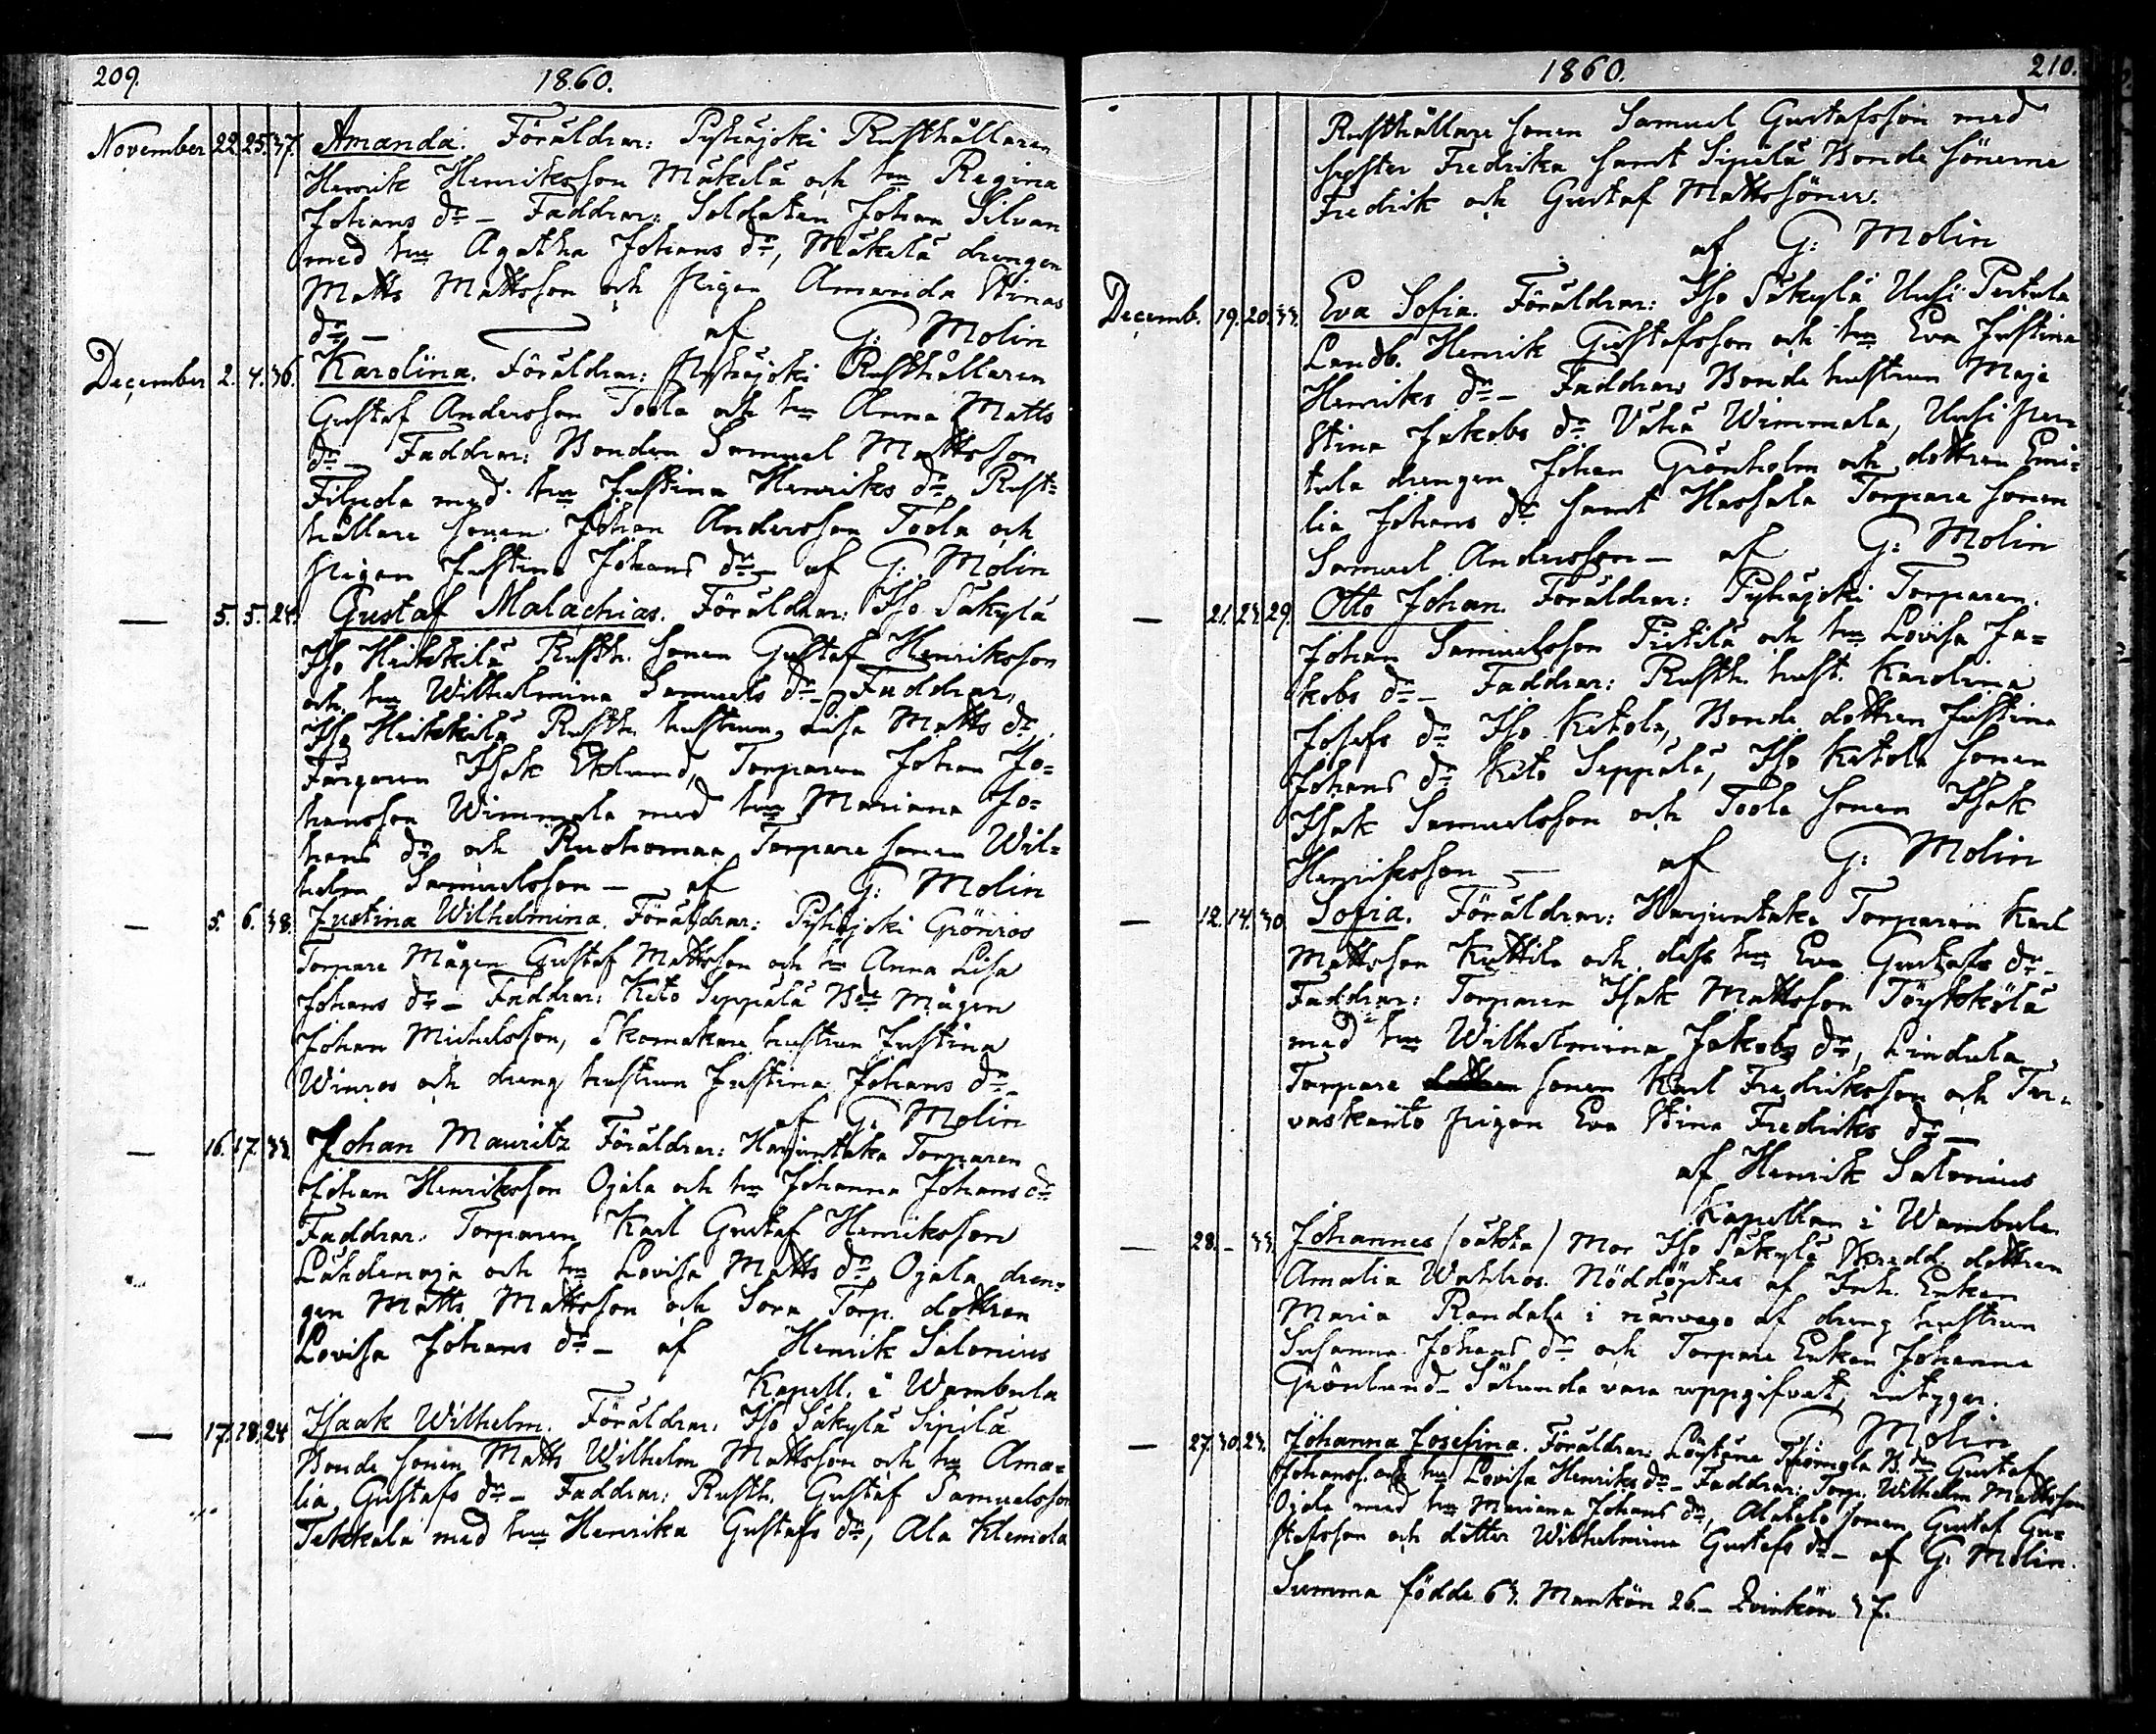 209. 1860.
November 22. 25. 37. Amanda. Föräldrar: Pyhäjoki Rusthållaren
Henrik Henriksson Mäkelä och hu Regina
Johans dr – Faddrar: Soldaten Johan Silvan
med hu Agatha Johans dr, Mäkelä drengen
Matts Mattsson och pigan Amanda Stinas
dr – af G: Molin
December 2. 4. 36. Karolina. Föräldrar: Pyhäjoki Rusthållaren
Gustaf Andersson Toola och hu Anna Matts
dr – Faddrar: Bonden Samuel Mattsson
Filpula med hu Justina Henriks dr, Rust=
hållare sonen Johan Andersson Toola och
pigan Justina Johans dr – af G: Molin
— 5. 5. 24. Gustaf Malachias. Föräldrar: Iso Säkylä
Iso Heikkilä Rusth. sonen Gustaf Henriksson
och hu Wilhelmina Samuels dr – Faddrar,
Iso Heikkilä Rusth. hustrun Lisa Matts dr,
Färgaren Isak Eklund, Torparen Johan Jo=
hansson Wimmala med hu Mariana Jo=
hans dr och Ruohomaa Torpare sonen Wil=
helm Samuelsson – af G: Molin
— 5. 6. 38. Justina Wilhelmina. Föräldrar: Pyhäjoki Grönros
Torpare Mågen Gustaf Mattsson och hu Anna Lisa
Johans dr – Faddrar: Keto Seppälä Bde Mågen
Johan Michelsson, Skomakare hustrun Justina
Winros och dreng hustrun Justina Johans dr –
af G: Molin
— 16. 17. 33. Johan Mauritz Föräldrar: Harjuntaka Torparen
Johan Henriksson Ojala och hu Johanna Johans dr
Faddrar. Torparen Karl Gustaf Henriksson
Lähdenoja och hu Lovisa Matts dr Ojala dren=
gen Matts Mattsson och Sora Torp. dottren
Lovisa Johans dr – af Henrik Salonius
Kapell. i Wambula
— 17. 18. 24 Isaak Wilhelm. Föräldrar: Iso Säkylä Sipilä
Bonde sonen Matts Wilhelm Mattsson och hu Ama=
lia Gustafs dr – Faddrar: Rusth. Gustaf Samuelsson
Takkala med hu Henrika Gustafs dr, Ala Klemola
1860. 210.
Rusthållare sonen Samuel Gustafsson med
syster Fredrika samt Sipilä Bonde sönerne
Fredrik och Gustaf Mattssöner.
af G: Molin
Decemb. 19. 20. 33. Eva Sofia. Föräldrar: Iso Säkylä Uusi Pertula
Landb. Henrik Gustafsson och hu Eva Justina
Henriks dr – Faddrar Bonde hustrun Maja
Stina Jakobs dr Vähä Wimmala, Uusi Per=
tula drengen Johan Grönholm och dottren Emi=
lia Johans dr samt Hassala Torpare sonen
Samuel Andersson – af G: Molin
— 21. 23. 29. Otto Johan. Föräldrar: Pyhäjoki Torparen
Johan Samuelsson Pietilä och hu Lovisa Ja=
kobs dr – Faddrar: Rusth. hust. Karolina
Josefs dr Iso Ketola, Bonde dottren Justina
Johans dr Keto Seppälä, Iso Ketola sonen
Isak Samuelsson och Toola sonen Isak
Henriksson – af G: Molin
— 12. 14. 30. Sofia. Föräldrar: Harjuntaka Torparen Karl
Mattsson Kuttila och dess hu Eva Gustafs dr –
Faddrar: Torparen Isak Mattsson Töykkölä
med hu Wilhelmina Jakobs dr, Lindula
Torpare dottren sonen Karl Fredriksson och Ter=
vaskanto pigan Eva Stina Fredriks dr –
af Henrik Salonius
Kapellan i Wambula
— 28. – 33. Johannes (oäkta) Mor Iso Säkylä dottren
Amalia Wahlros. Nöddöptes af Inh. Enkan
Maria Randala i närwaro af dreng hustrun
Susanna Johans dr och Torpare Enkan Johanna
Grönlund – Sålunda vara uppgifvet, intygar.
G: Molin
— 27. 30. 23. Johanna Josefina. Föräldrar: Löytäne B.den Gustaf
Johanss. och hu Lovisa Henriks dr – Faddrar: Torp. Wilhelm Mattsson
Ojala med hu Mariana Johans dr, Alatalo sonen Gustaf Gu=
stafsson och dotter Wilhelmina Gustafs dr – af G: Molin.
Summa födde 63. Mankön 26. – Qvinkön 37.